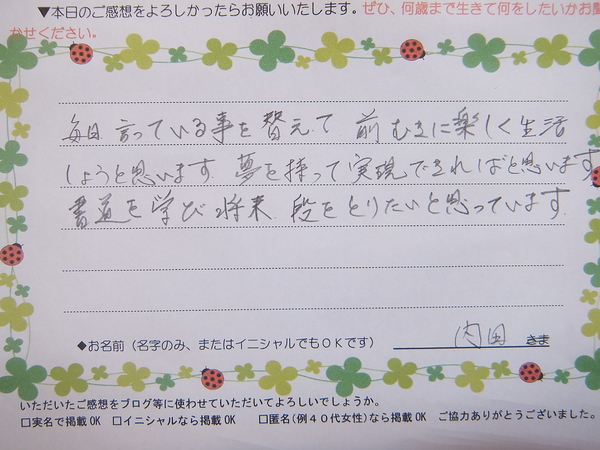 ▼本日のご感想をよろしかったらお願いいたします。ぜひ、何歳まで生きて何をしたいかお聞
かせください。
毎日 言っている事を替えて 前むきに楽しく生活
しようと思います 夢を持って実現できればと思います
書道を学び将来、段をとりたいと思っています
◆お名前（名字のみ、またはイニシャルでもＯＫです） 内田 さま
いただいたご感想をブログ等に使わせていただいてよろしいでしょうか。
□実名で掲載 OK □イニシャルなら掲載 OK □匿名(例４０代女性)なら掲載 OK ご協力ありがとうございました。